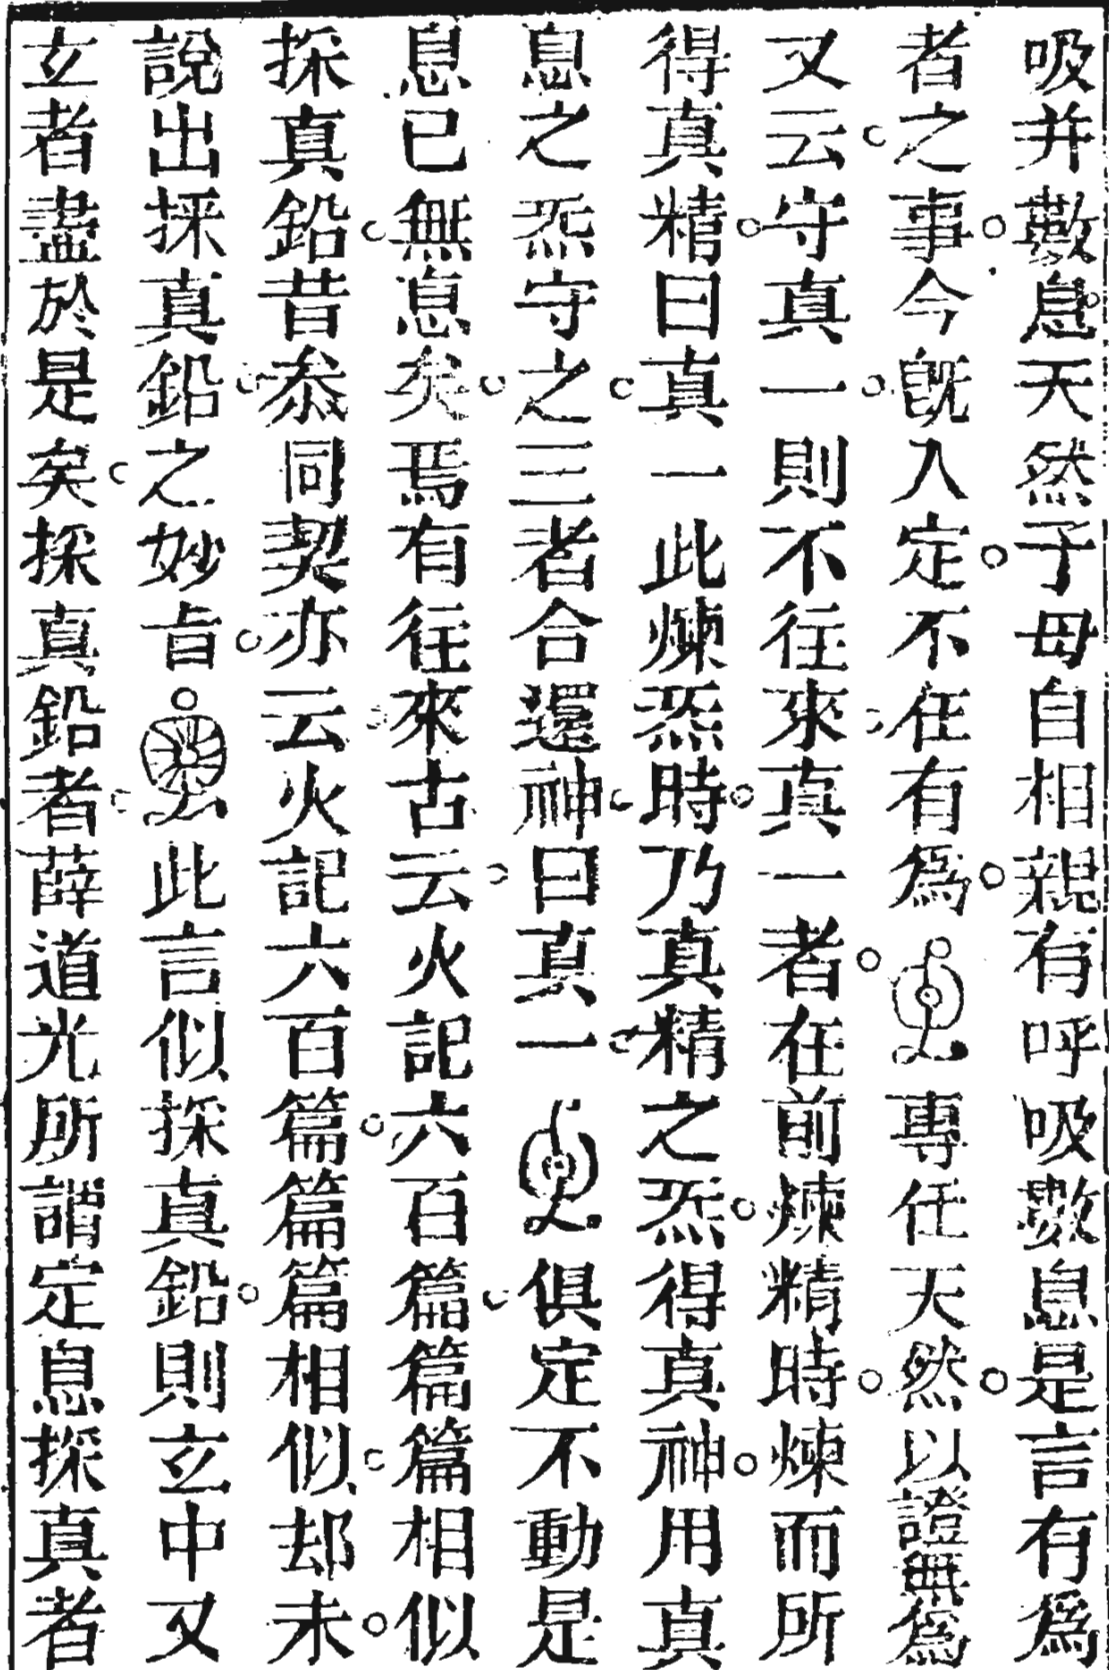 吸并數息天然子母自相親有呼吸數息是言有爲
者之事。今旣入定。不任有爲。專任天然。以證無爲
又云。守真一。則不往來。真一者。在前煉精時。煉而所
得真精。曰真一。此煉炁時。乃真精之炁。得真神。用真
息之炁守之。三者合還神。曰真一。俱定不動。是
息已無息矣。焉有往來。古云。火記六百篇。篇篇相似
採真鉛。昔叅同契亦云火記六百篇。篇篇相似。却未。
說出採真鉛。之妙旨。此言似採真鉛。則玄中又
玄者盡於是矣。採真鉛者。薛道光所謂定息採真者